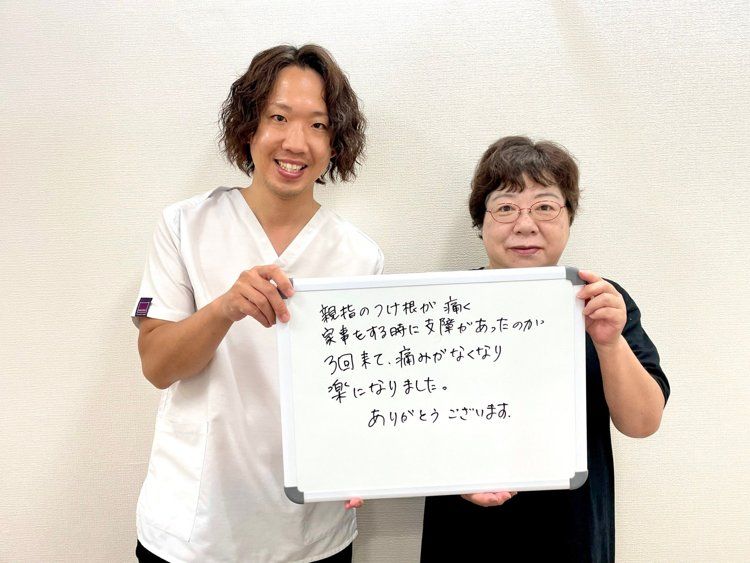 親指のつけ根が 痛く
家事をする時に支障があったのが
3回来て、痛みがなくなり
楽になりました。
ありがとうございます.